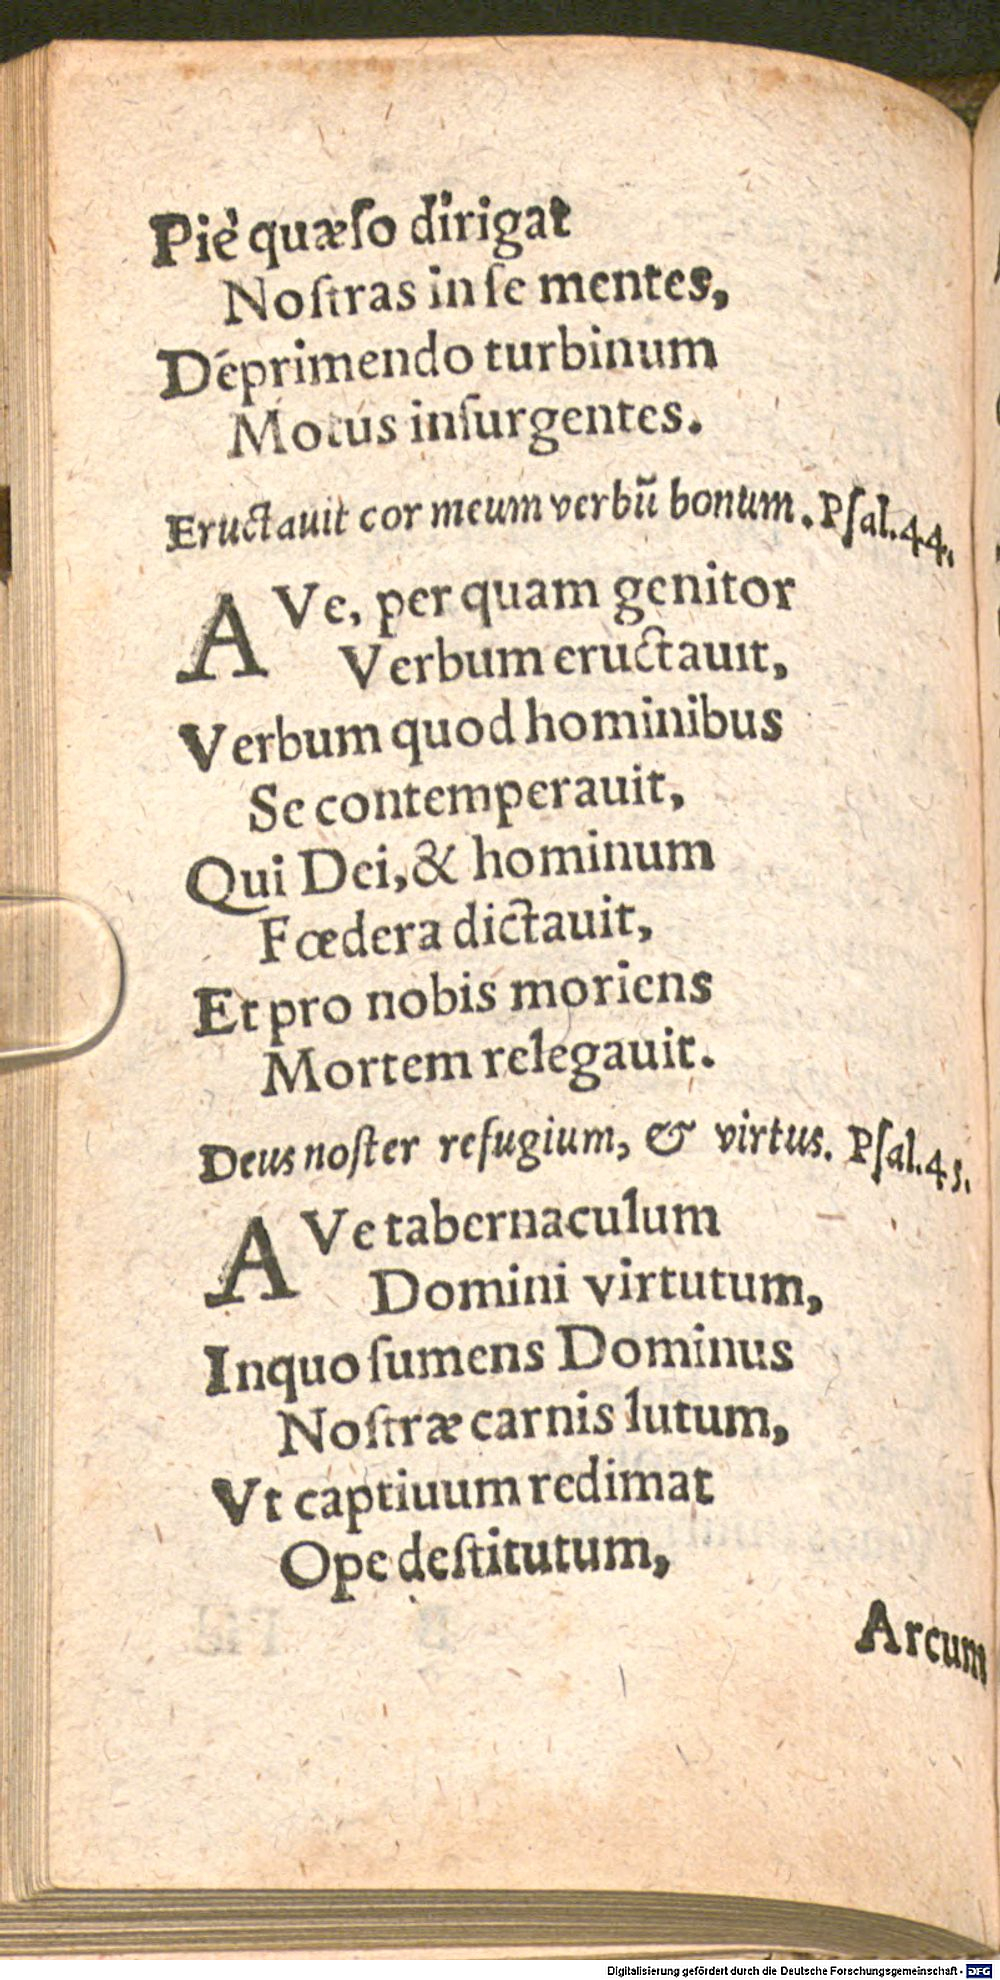 Piè quæſo dirigat
Noſtras in ſe mentes,
Déprimendo turbinum
Motus inſurgentes.
Eructauit cor meum verbũ bonum. Pſal. 44.
AVe, per quam genitor
Verbum eructauit,
Verbum quod hominibus
Se contemperauit,
Qui Dei, & hominum
Fœdera dictauit,
Et pro nobis moriens
Mortem relegauit.
Deus noſter refugium, & virtus. Pſal. 45.
AVe tabernaculum
Domini virtutum,
In quo ſumens Dominus
Noſtræ carnis lutum,
Vt captiuum redimat
Ope deſtitutum,
Arcum
Digitalisierung gefördert durch die Deutsche Forschungsgemeinschaft - DFG